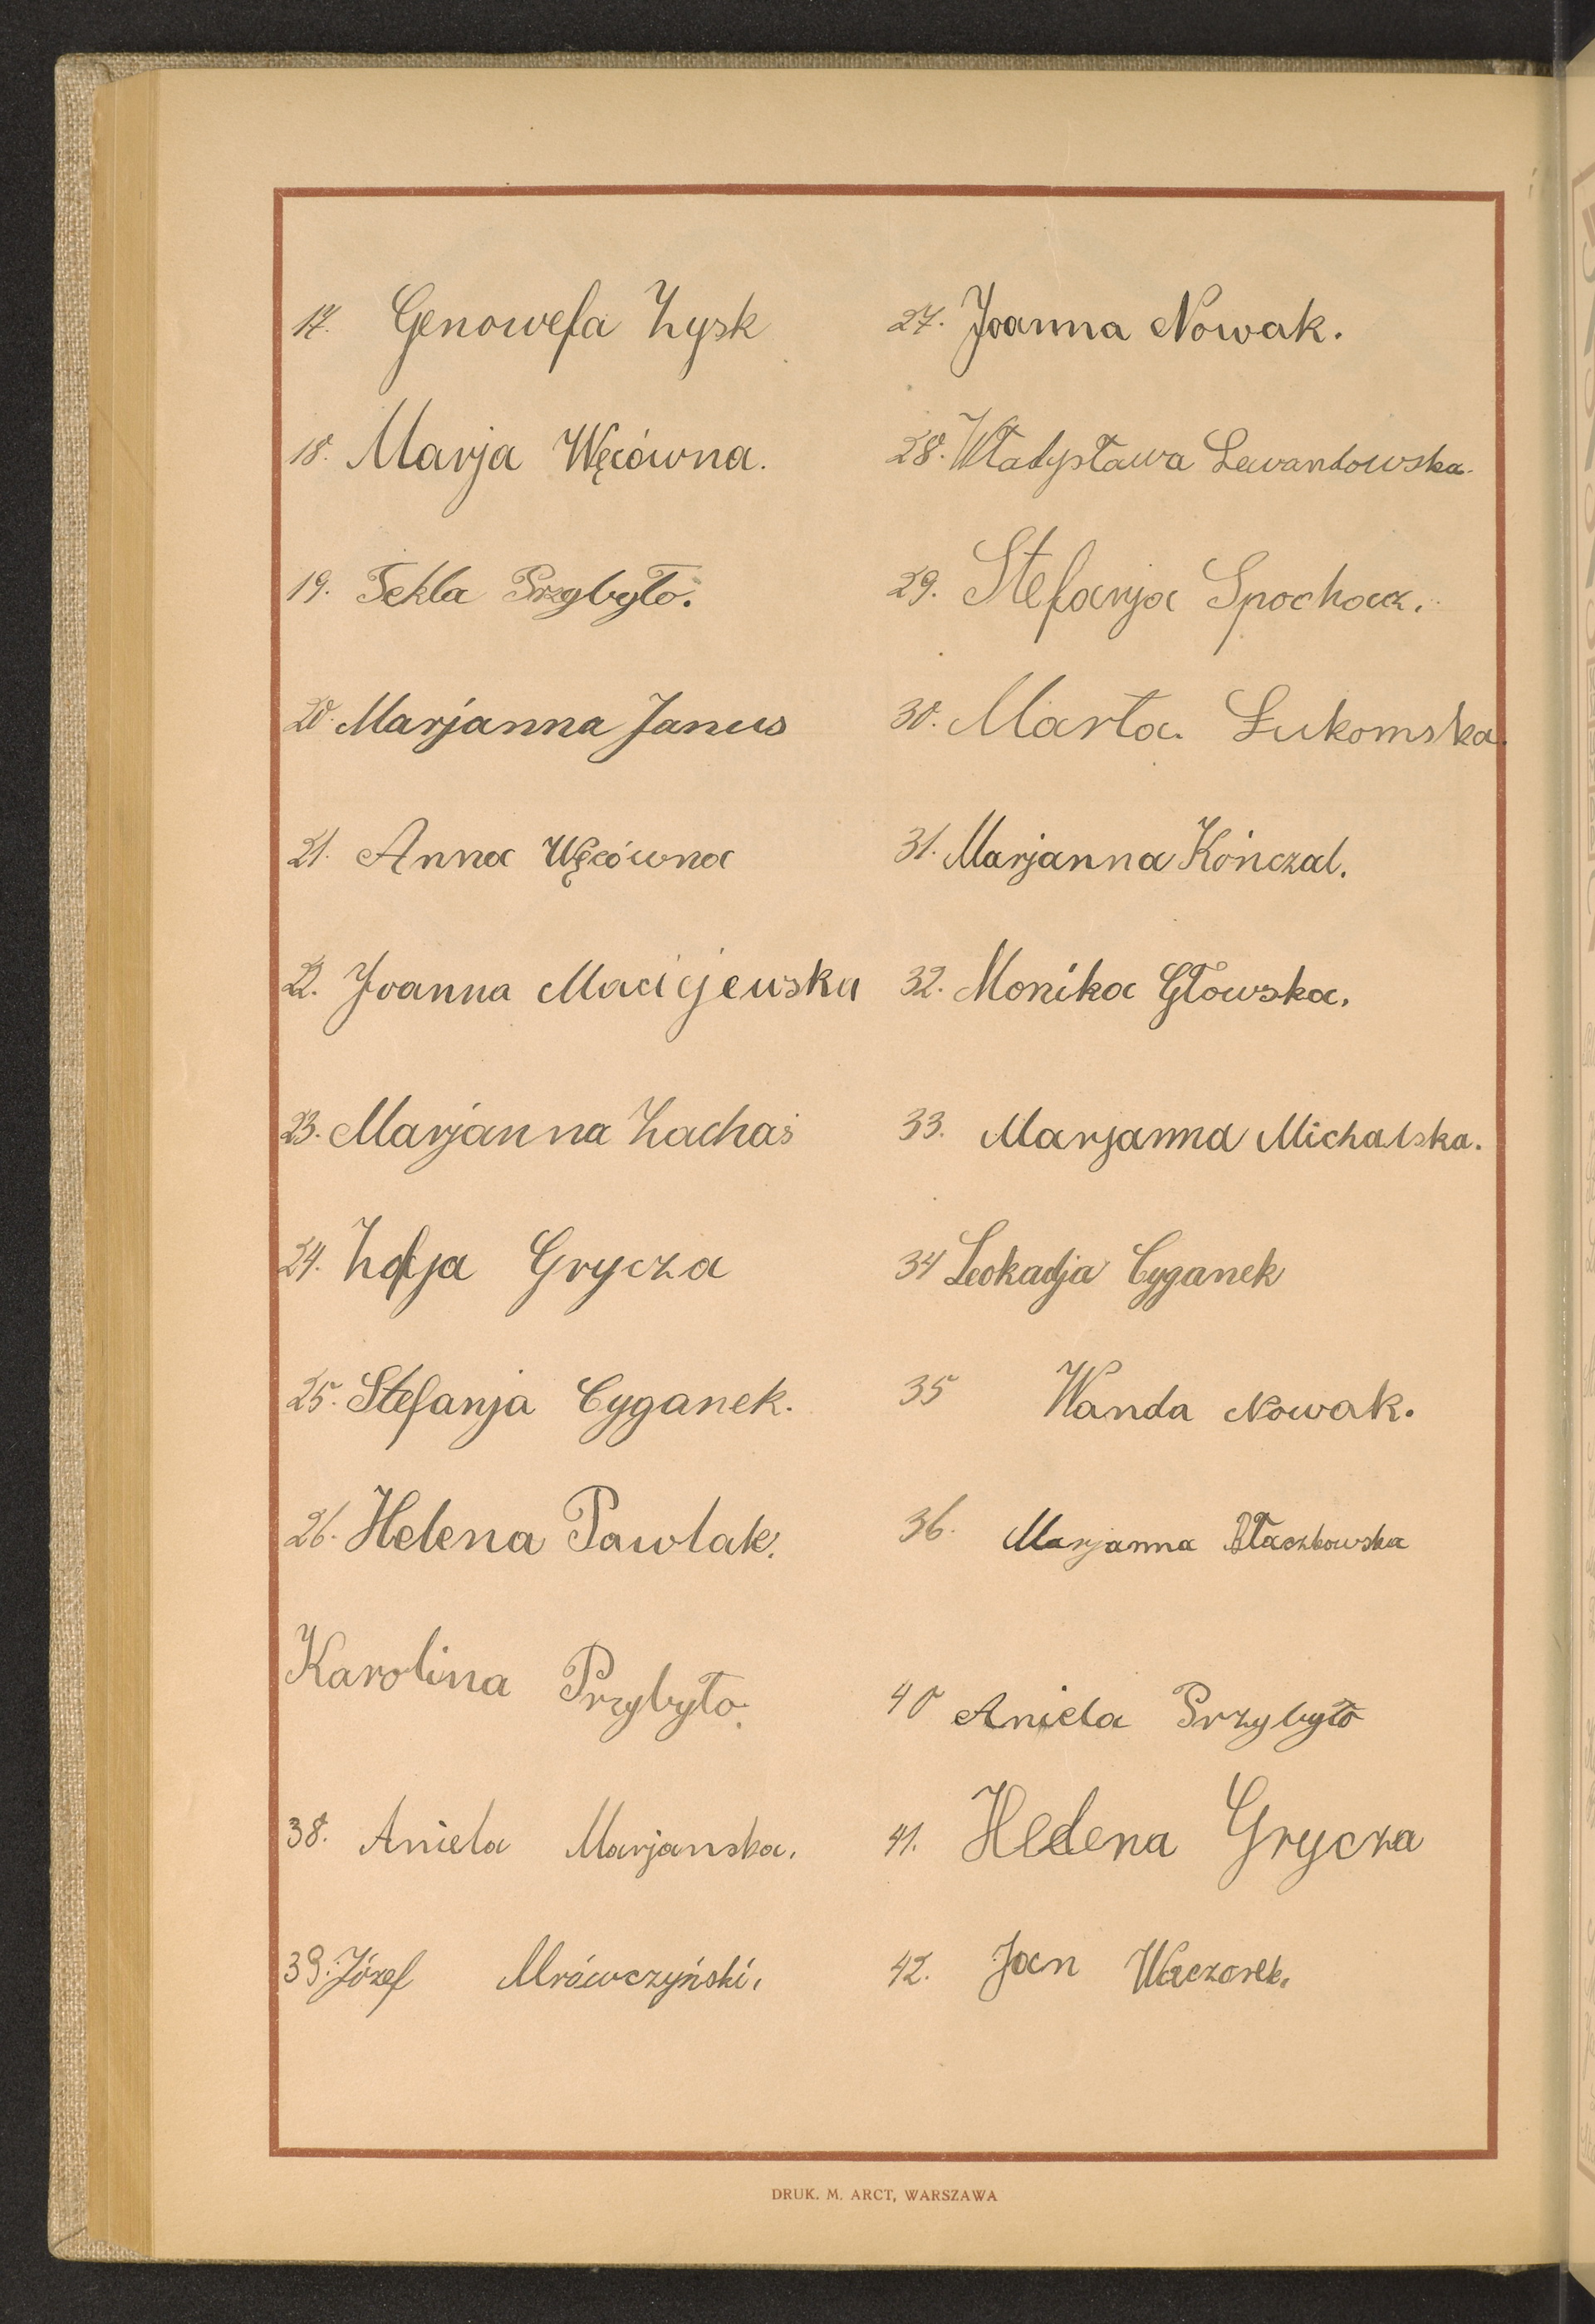 17. Genowefa Zysk
18. Marja Węcówna.
19. Tekla Przybyło.
20. Marjanna Janus
21. Anna Węcówna
22. Joanna Maciejewska
23. Marjanna Zachaś
24. Zofja Grycza
25. Stefanja Cyganek.
26. Helena Pawlak.
Karolina Przybyło.
38. Aniela Marjanska.
39. Józef Mrówczyński.
27. Joanna Nowak.
28. Władysława Lewandowska.
29. Stefanja Spochacz.
30. Marta Łukomska.
31. Marjanna Kończal.
32. Monika Głowska.
33. Marjanna Michalska.
34 Leokadja Cyganek
35 Wanda Nowak.
36. Marjanna Błaszkowska
40 Aniela Przybyło
41. Helena Grycza
42. Jan Waczorek.
DRUK. M. ARCT, WARSZAWA